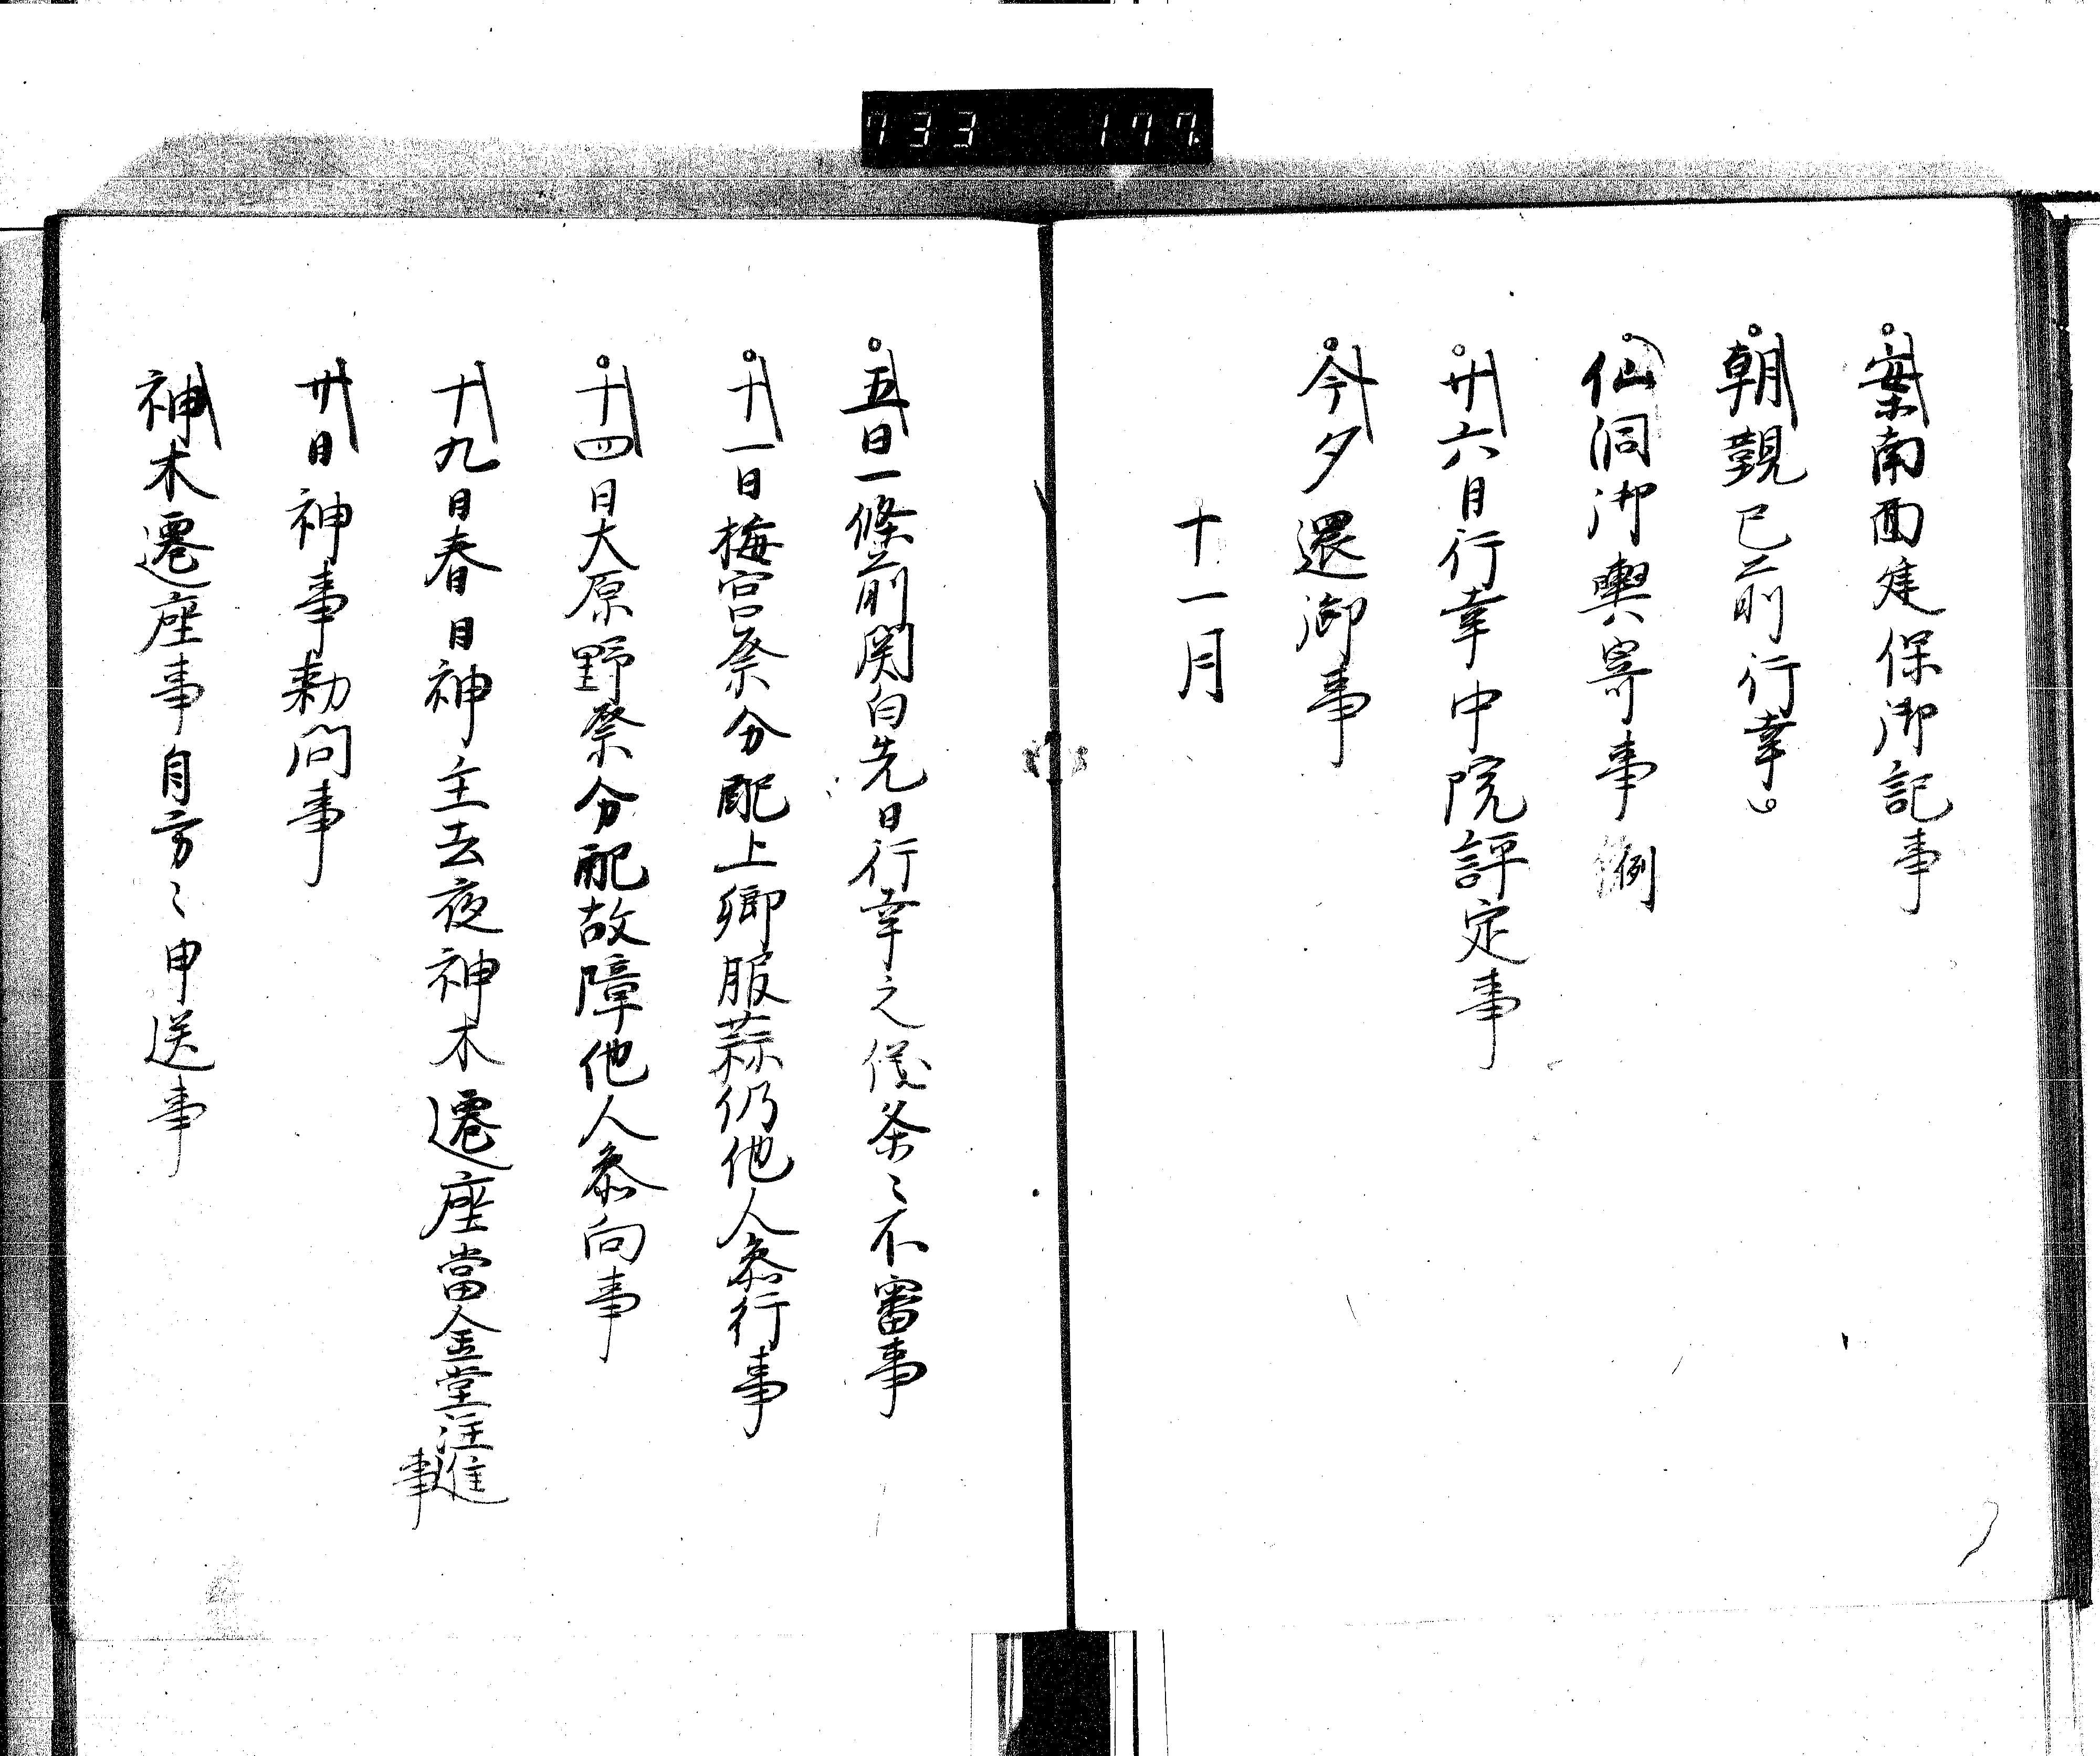 733 177
案南面建保御記事
朝覲已前行幸〻
仙洞御輿寄事例
廿六日行幸中院評定事
今夕還御事
十一月
五日一條前関白先日行幸之儀条〻不審事
十一日梅宮祭分配上卿服蒜仍他人参行事
十四日大原野祭分配故障他人参向事
十九日春日神主去夜神木遷座當金堂注進
事
廿日神事勅問事
神木遷座事自方〻申送事